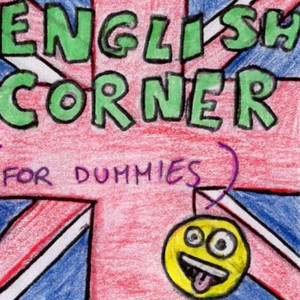 ENGLISH
CORNER
(FOR DUMMIES)